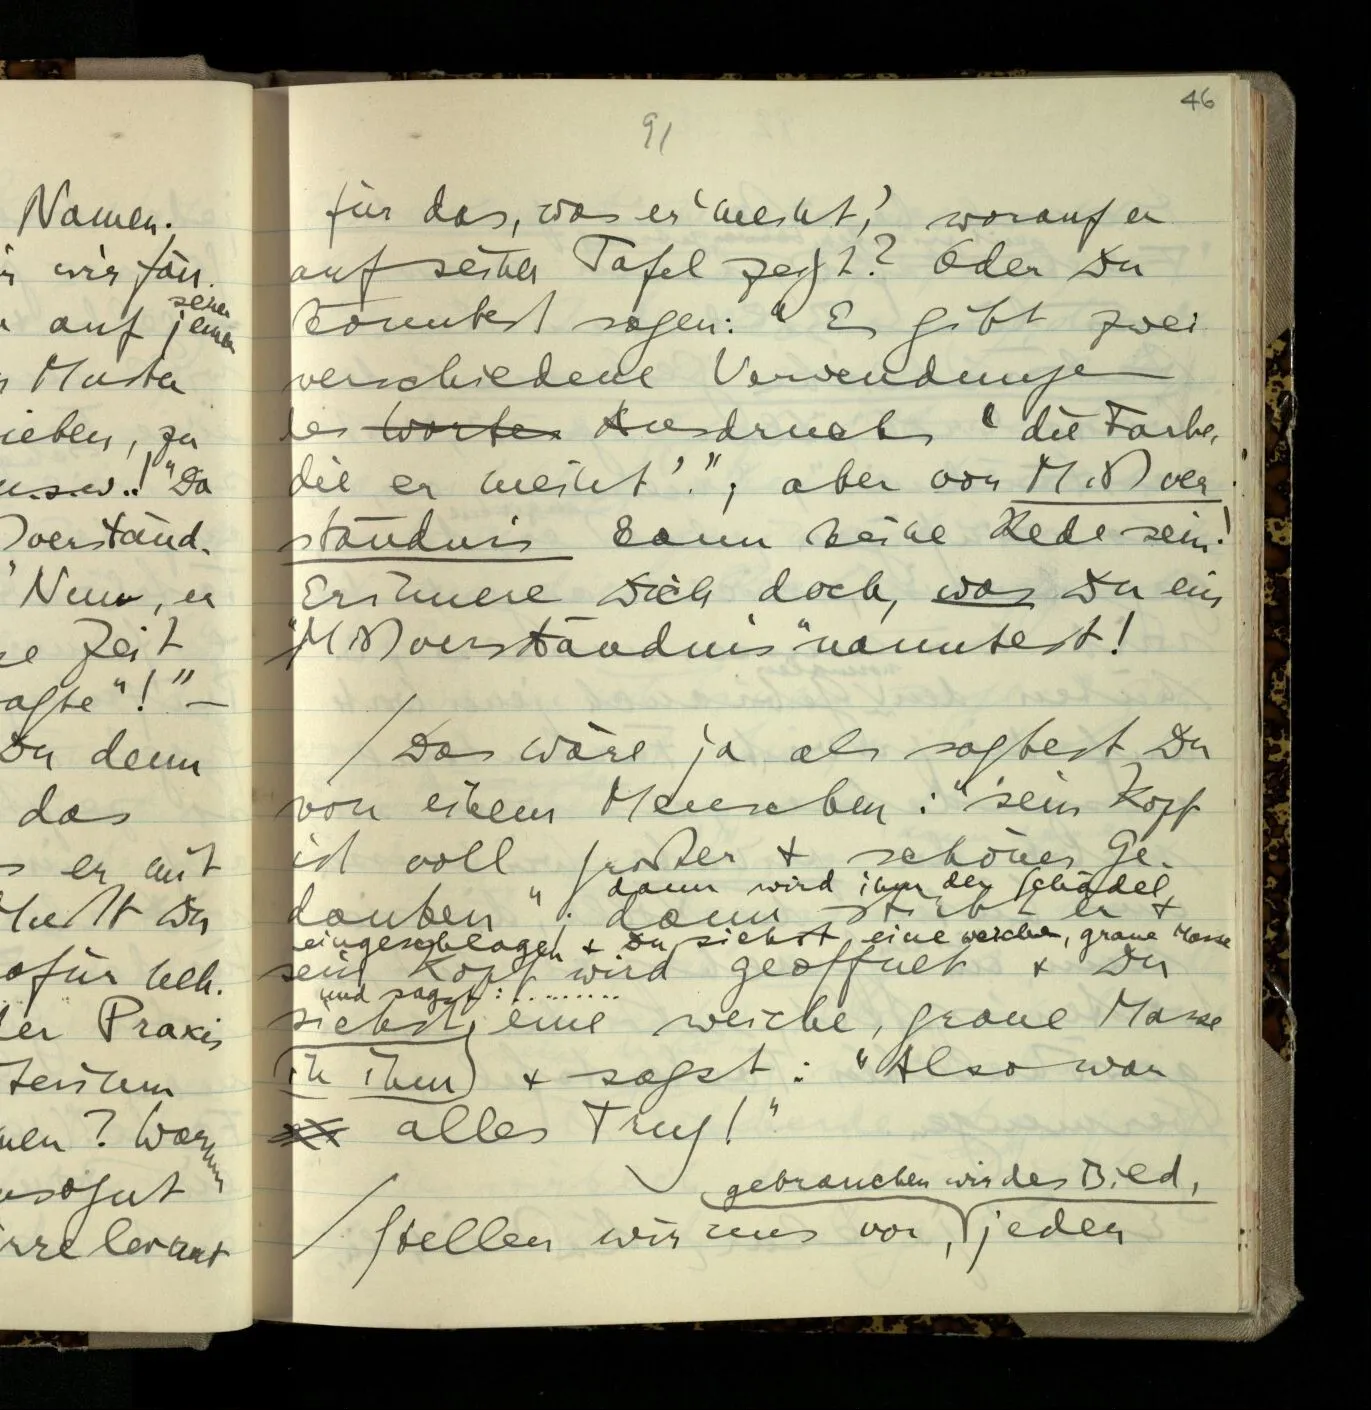 46
91
Namen.
wir
seinen
auf jenen
Muster
ieben, zu
u.s.w..!" Da
verständ-
" Nun, er
Zeit
agte"!" –
Du denn
das
er mit
Du
afür neh-
der Praxis
men? Warum
ensogut
irrelevant
für das, was er 'meint', worauf er
auf seiner Tafel zeigt? Oder Du
könntest sagen: "Es gibt zwei
verschiedene Verwendungen
des Wortes Ausdrucks 'die Farbe,
die er meint'."; aber von Mißver
ständnis kann keine Rede sein!
Erinnere Dich doch, was Du ein
"Mißverständnis" nanntest!
/ Das wäre ja als sagtest Du
von einem Menschen: "sein Kopf
ist voll großer & schöner Ge-
dann wird ihm der Schädel
danken"; dann stirbt er &
eingeschlagen & Du siehst eine weiche, graue Masse
sein Kopf wird geöffnet & Du
und sagst: .........
siehst, eine weiche, graue Masse
in ihm & sagst: "Also war
alles Trug!"
gebrauchen wir des Bild,
/ Stellen wir uns vor, jeden